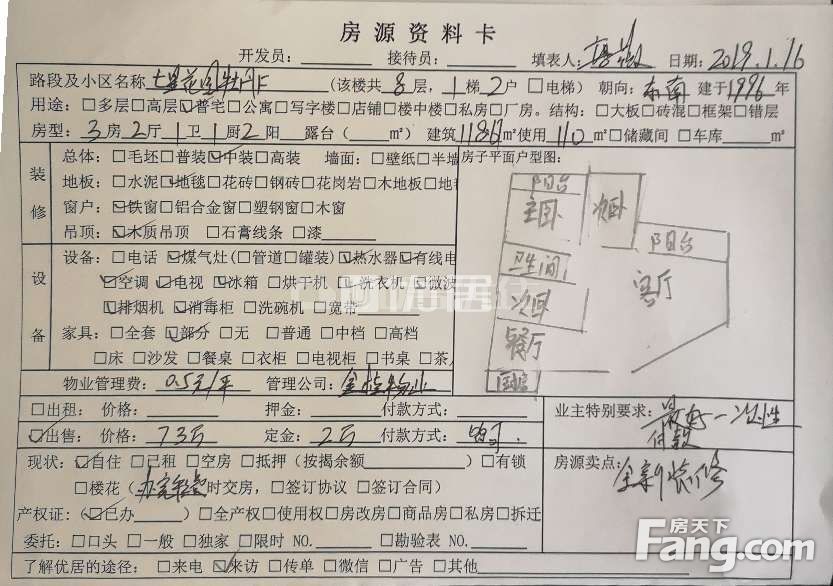 房源资料卡
开发员：______ 接待员：______ 填表人： 日期：2019.1.16
路段及小区名称 七星花园牡丹F (该楼共8层，1梯2户 □电梯) 朝向：东南 建于1996年
用途：□多层□高层☑普宅□公寓□写字楼□店铺□楼中楼□私房□厂房。结构：□大板□砖混□框架□错层
房型：3房2厅1卫1厨2阳____露台（____㎡）建筑118.6㎡使用110㎡□储藏间 □车库____㎡
装修
总体：□毛坯□普装☑中装□高装 墙面：□壁纸□半墙
地板：□水泥☑地毯□花砖□钢砖□花岗岩□木地板□地毯
窗户：☑铁窗□铝合金窗□塑钢窗□木窗
吊顶：☑木质吊顶 □石膏线条 □漆______
房子平面户型图：
阳台
主卧
次卧
阳台
卫生间
客厅
次卧
餐厅
设备
设备：□电话 ☑煤气灶(□管道□罐装)☑热水器☑有线电
☑空调 ☑电视 ☑冰箱 □烘干机 ☑洗衣机☑微波
☑排烟机 ☑消毒柜 □洗碗机 □宽带
优居
家具：□全套 ☑部分 □无 □普通 □中档 □高档
□床 □沙发 □餐桌 □衣柜 □电视柜 □书桌 □茶
物业管理费：0.5元/平 管理公司：金桂物业
□出租：价格：______ 押金：______ 付款方式：______
☑出售：价格：73万 定金：2万 付款方式：皆可.
业主特别要求：最好一次性
付款
现状：☑自住 □已租 □空房 □抵押（按揭余额______）□有锁
□楼花（______时交房，□签订协议 □签订合同）
房源卖点：全新装修
产权证：(☑已办______)□全产权□使用权□房改房□商品房□私房□拆迁
委托：□口头 □一般 □独家 □限时 NO.______ □勘验表 NO.______
了解优居的途径：□来电 ☑来访 □传单 □微信 □广告 □其他______
房天下
Fang.com